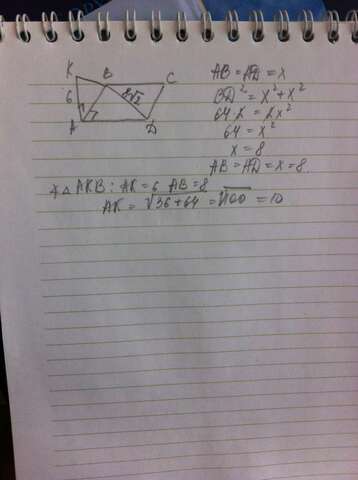 K B C
6 8√2
A D
AB = AD = x
BD² = x² + x²
64·2 = 2x²
64 = x²
x = 8
AB = AD = x = 8
△ AKB: AK = 6 AB = 8
AK = √36+64 = √100 = 10